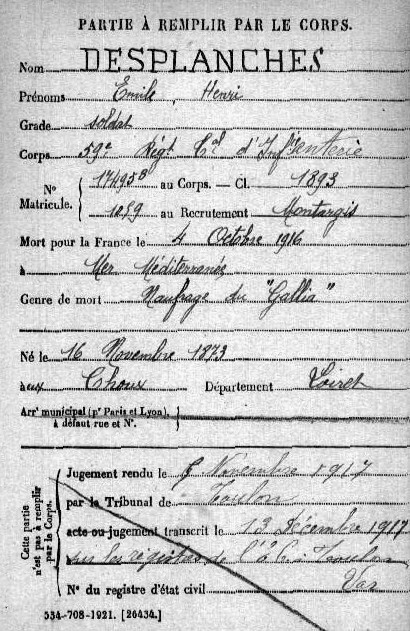 PARTIE À REMPLIR PAR LE CORPS.
Nom DESPLANCHES
Prénoms Emile, Henri
Grade soldat
Corps 59e Régt Cal d'Infanterie
N° Matricule. { 17495 au Corps. — Cl. 1893
1059 au Recrutement Montargis
Mort pour la France le 4 Octobre 1916
à Mer Méditerranée
Genre de mort Naufrage du "Gallia"
Né le 16 Novembre 1873
à aux Choux Département Loiret
Arrt municipal (pr Paris et Lyon), à défaut rue et N°. }
Cette partie n'est pas à remplir par le Corps.
Jugement rendu le Novembre 1917
par le Tribunal de Toulon
acte ou jugement transcrit le 13 Décembre 1917
sur les registres de l'é à Toulon
N° du registre d'état civil Var
534-708-1921. [26434.]